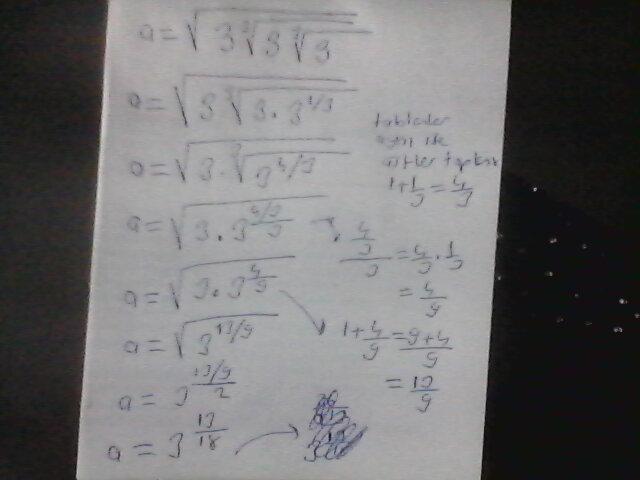 a = √(3 ∛(3 ∛3))
a = √(3 ∛(3 · 3^(1/3)))
a = √(3 · ∛(3^(4/3)))
a = √(3 · 3^((4/3)/3))
a = √(3 · 3^(4/9))
a = √(3^(13/9))
a = 3^((13/9)/2)
a = 3^(13/18)
1 + 1/3 = 4/3
(4/3)/3 = 4/3 · 1/3
= 4/9
1 + 4/9 = (9+4)/9
= 13/9